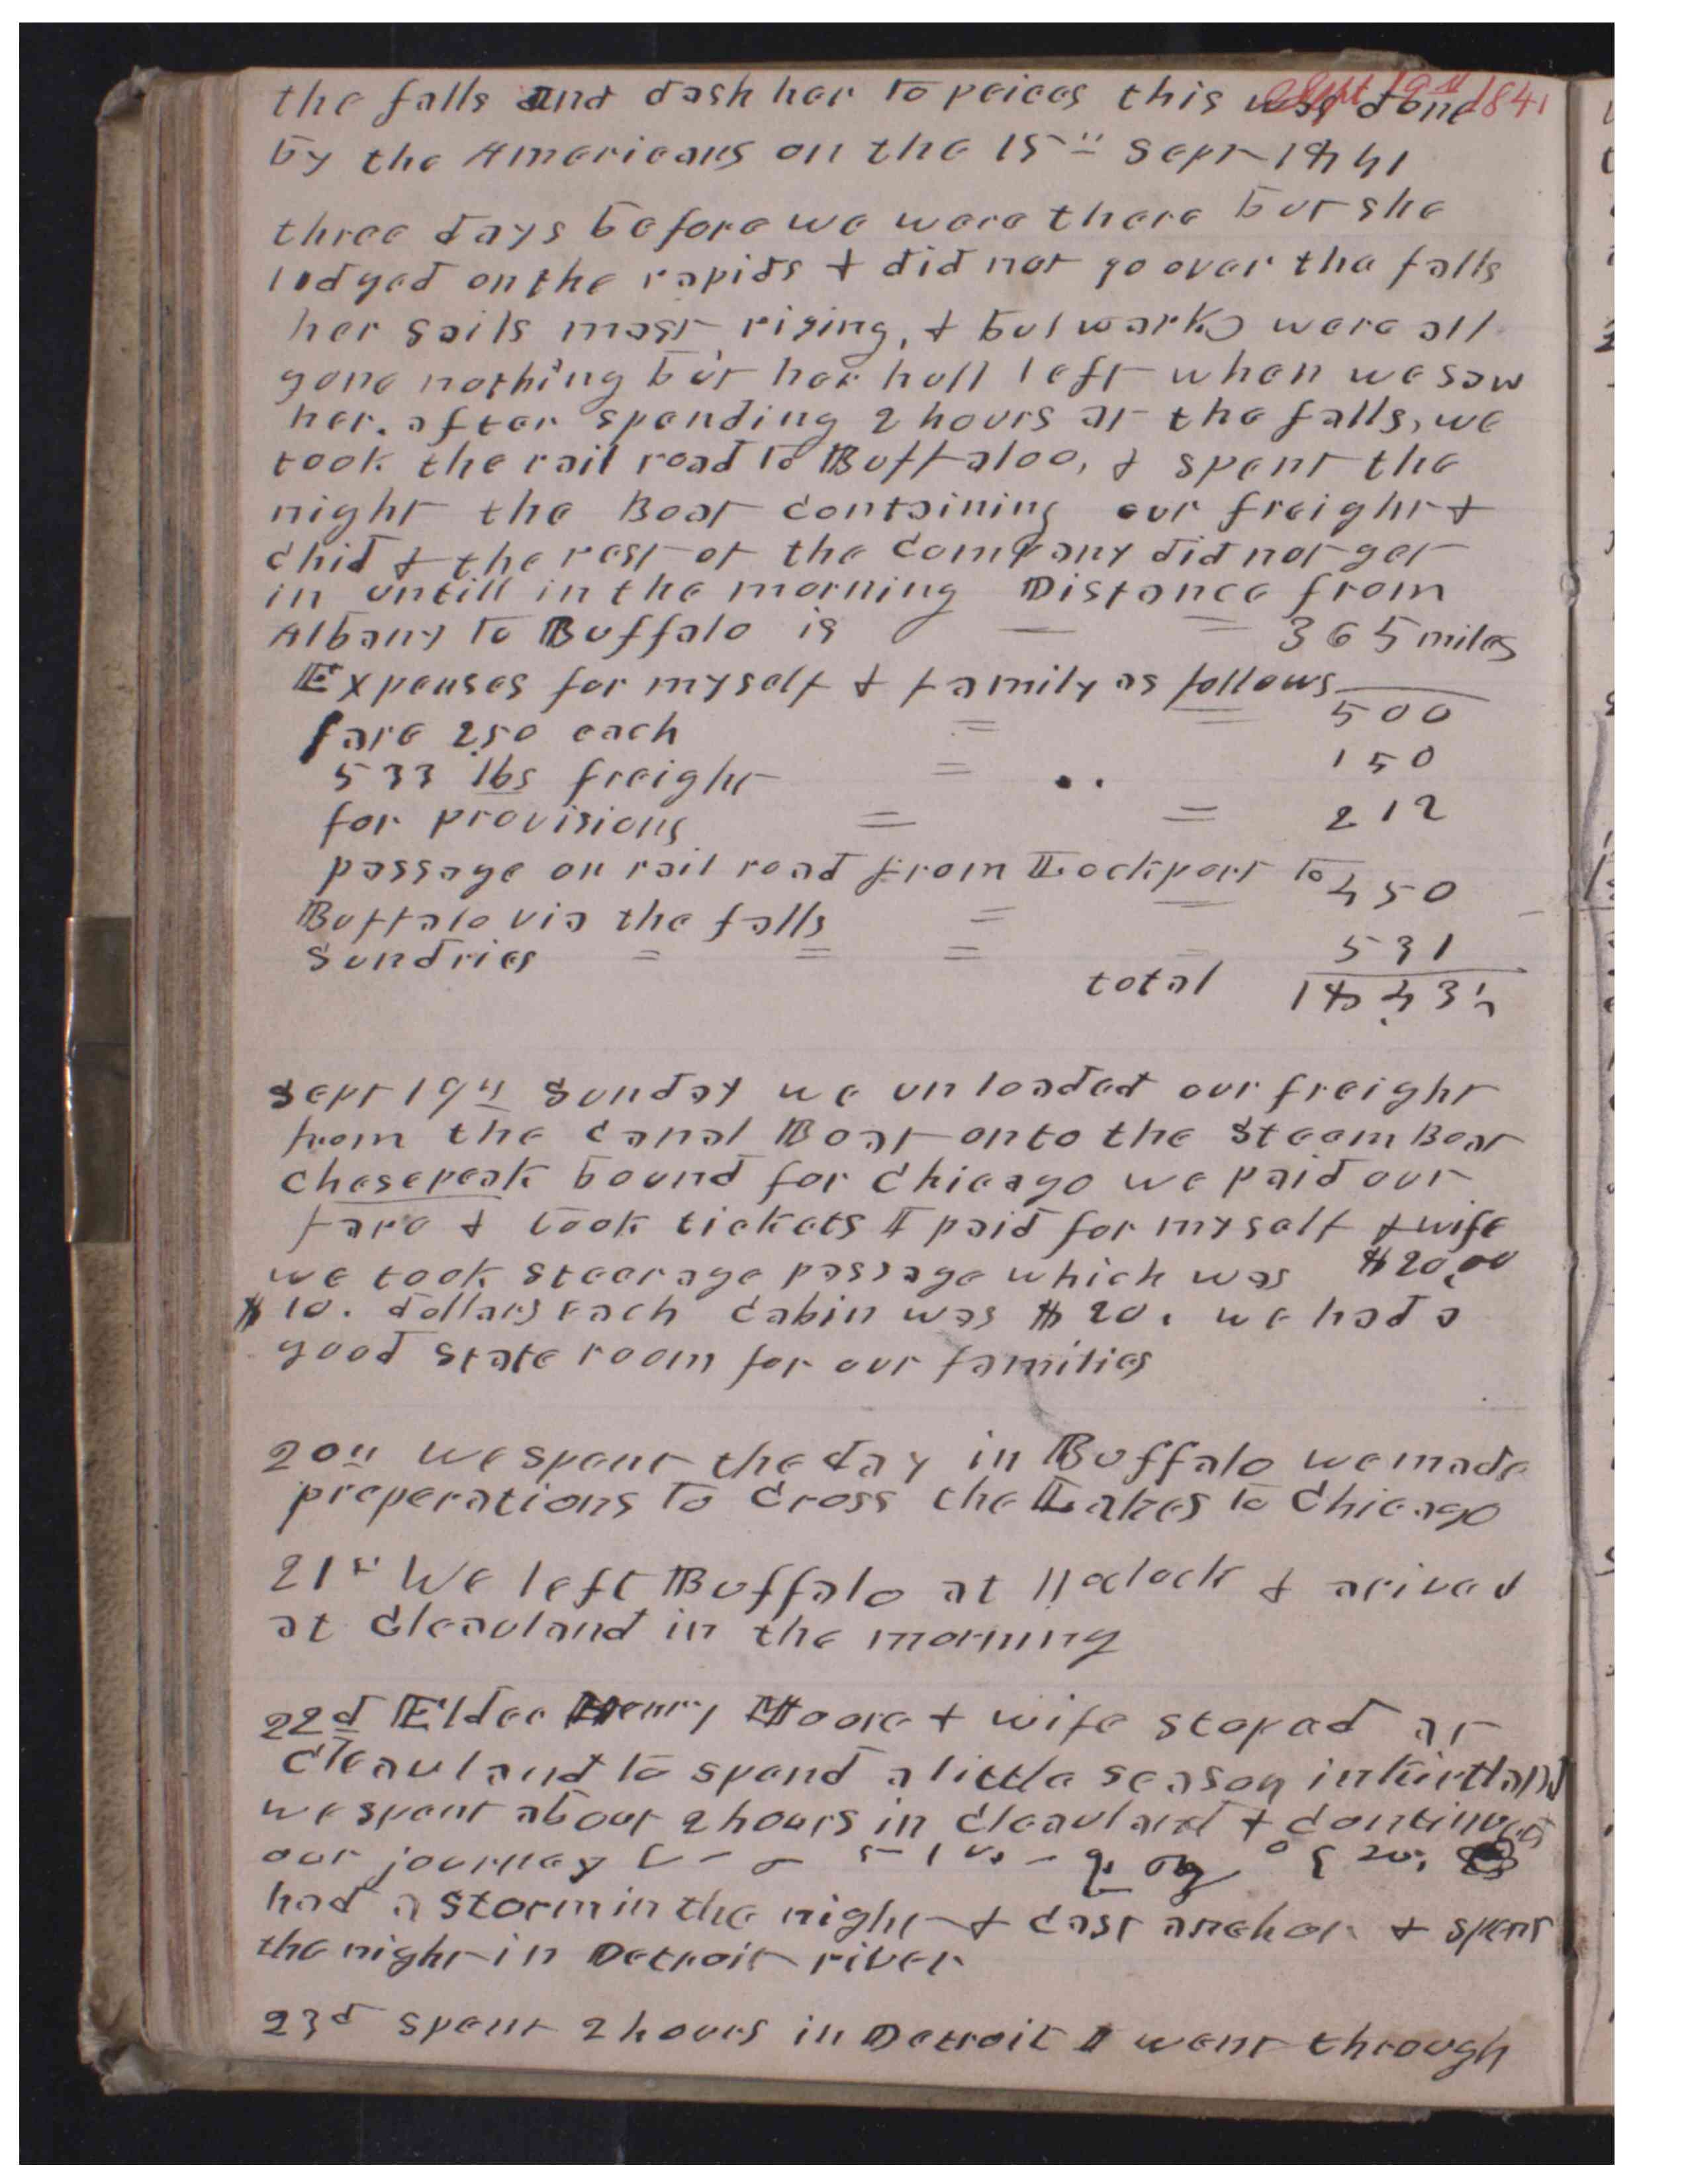 Sept 19th 1841
the falls and dash her to peices this was done
by the Americans on the 15th Sept 1841
three days before we were there but she
lodged on the rapids & did not go over the falls
her sails mast riging, & bulwarks were all
gone nothing but her hull left when we saw
her. after spending 2 hours at the falls, we
took the rail road to Buffaloo, & spent the
night the Boat containing our freight &
chid & the rest of the company did not get
in untill in the morning Distance from
Albany to Buffalo is — = 365 miles
Expenses for myself & family as follows
fare 2.50 each = = 500
533 lbs freight = .. 150
for provisions = = 212
passage on rail road from Lockport to
Buffalo via the falls = = 450
Sundries = = = 531
total
Sept 19th Sunday we unloaded our freight
from the canal Boat onto the Steam Boat
Chesepeak bound for Chicago we paid our
fare & took tickets I paid for myself & wife
we took steerage passage which was $20,00
$10. dollars each cabin was $20. we had a
good state room for our families
20th we spent the day in Buffalo we made
preperations to cross the Lakes to Chicago
21st We left Buffalo at 11 oclock & arived
at Cleavland in the morning
22d Elder Henry Moore & wife stoped at
Cleavland to spend a little season in Kirtland
we spent about 2 hours in Cleavland & continued
our journey
had a storm in the night & cast anchor & spent
the night in Detroit river
23d spent 2 hours in Detroit I went through